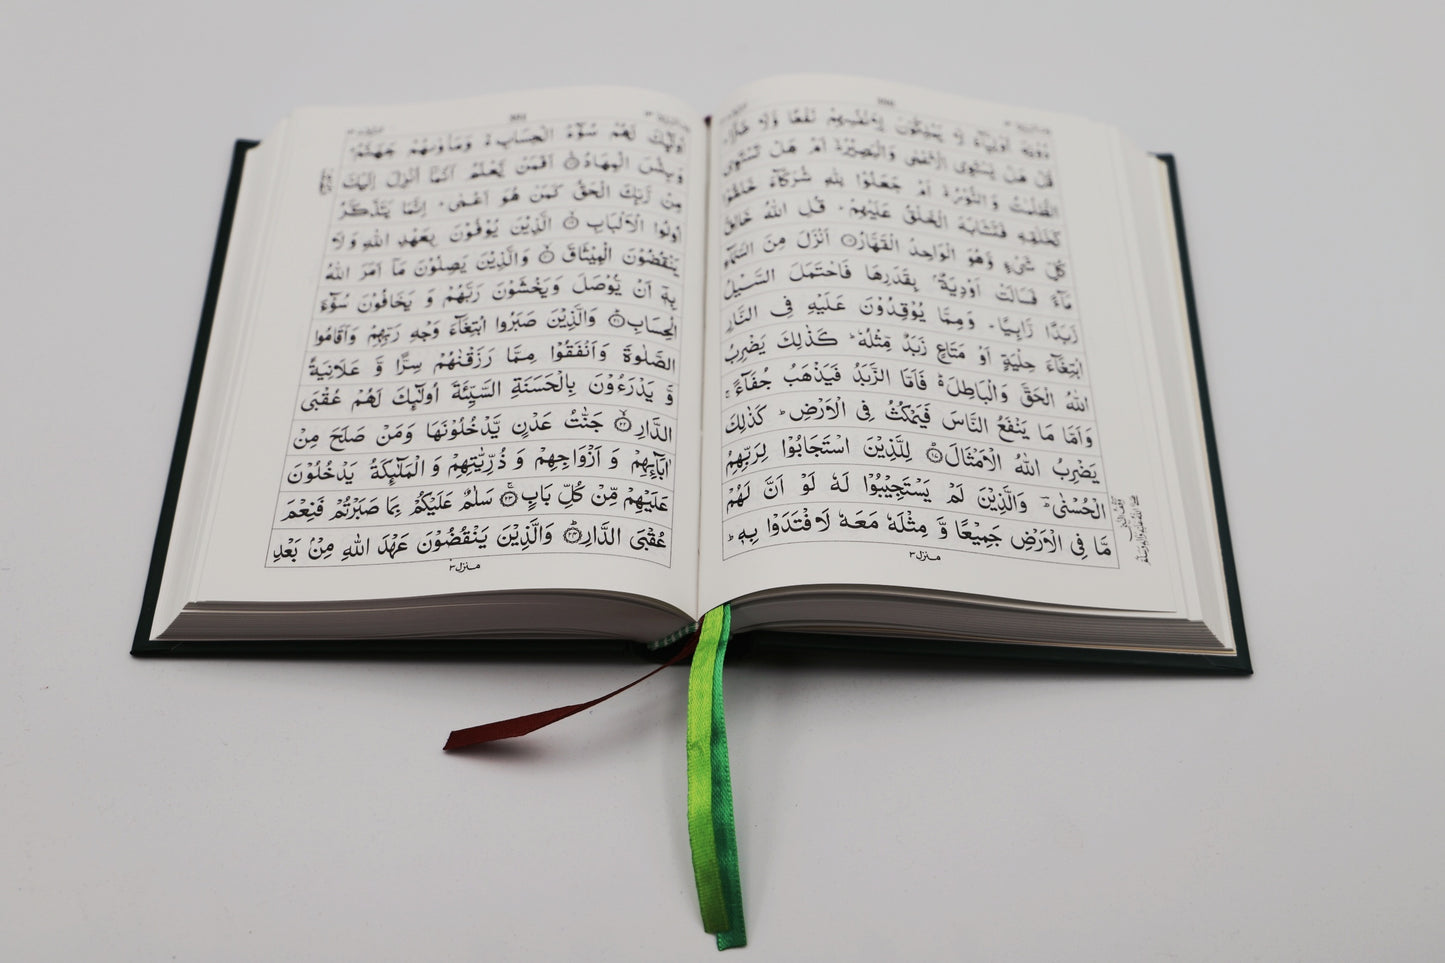 دُوۡنِهٖۤ اَوۡلِيَآءَ لَا يَمۡلِكُوۡنَ لِاَنۡفُسِهِمۡ نَفۡعًا وَّلَا ضَرًّاؕ
قُلۡ هَلۡ يَسۡتَوِى الۡاَعۡمٰى وَالۡبَصِيۡرُ ۙ اَمۡ هَلۡ تَسۡتَوِى
الظُّلُمٰتُ وَالنُّوۡرُ ۚ اَمۡ جَعَلُوۡا لِلّٰهِ شُرَكَآءَ خَلَقُوۡا
كَخَلۡقِهٖ فَتَشَابَهَ الۡخَلۡقُ عَلَيۡهِمۡؕ قُلِ اللّٰهُ خَالِقُ
كُلِّ شَىۡءٍ وَّهُوَ الۡوَاحِدُ الۡقَهَّارُ ۝۱۶ اَنۡزَلَ مِنَ السَّمَآءِ
مَآءً فَسَالَتۡ اَوۡدِيَةٌۢ بِقَدَرِهَا فَاحۡتَمَلَ السَّيۡلُ
زَبَدًا رَّابِيًا ؕ وَمِمَّا يُوۡقِدُوۡنَ عَلَيۡهِ فِى النَّارِ
ابۡتِغَآءَ حِلۡيَةٍ اَوۡ مَتَاعٍ زَبَدٌ مِّثۡلُهٗ ؕ كَذٰلِكَ يَضۡرِبُ
اللّٰهُ الۡحَقَّ وَالۡبَاطِلَ ۬ؕ فَاَمَّا الزَّبَدُ فَيَذۡهَبُ جُفَآءً ۚ
وَاَمَّا مَا يَنۡفَعُ النَّاسَ فَيَمۡكُثُ فِى الۡاَرۡضِ ؕ كَذٰلِكَ
يَضۡرِبُ اللّٰهُ الۡاَمۡثَالَ ؕ ۝۱۷ لِلَّذِيۡنَ اسۡتَجَابُوۡا لِرَبِّهِمُ
الۡحُسۡنٰى ؕ وَالَّذِيۡنَ لَمۡ يَسۡتَجِيۡبُوۡا لَهٗ لَوۡ اَنَّ لَهُمۡ
مَّا فِى الۡاَرۡضِ جَمِيۡعًا وَّمِثۡلَهٗ مَعَهٗ لَافۡتَدَوۡا بِهٖ ؕ
منزل ۳
اُولٰٓٮِٕكَ لَهُمۡ سُوۡٓءُ الۡحِسَابِ ۙ وَمَاۡوٰٮهُمۡ جَهَنَّمُ ؕ
وَبِئۡسَ الۡمِهَادُ ۝۱۸ اَفَمَنۡ يَّعۡلَمُ اَنَّمَاۤ اُنۡزِلَ اِلَيۡكَ
مِنۡ رَّبِّكَ الۡحَقُّ كَمَنۡ هُوَ اَعۡمٰى ؕ اِنَّمَا يَتَذَكَّرُ
اُولُوا الۡاَلۡبَابِ ۙ ۝۱۹ الَّذِيۡنَ يُوۡفُوۡنَ بِعَهۡدِ اللّٰهِ وَلَا
يَنۡقُضُوۡنَ الۡمِيۡثَاقَ ۙ ۝۲۰ وَالَّذِيۡنَ يَصِلُوۡنَ مَاۤ اَمَرَ اللّٰهُ
بِهٖۤ اَنۡ يُّوۡصَلَ وَيَخۡشَوۡنَ رَبَّهُمۡ وَ يَخَافُوۡنَ سُوۡٓءَ
الۡحِسَابِ ؕ ۝۲۱ وَالَّذِيۡنَ صَبَرُوا ابۡتِغَآءَ وَجۡهِ رَبِّهِمۡ وَاَقَامُوا
الصَّلٰوةَ وَاَنۡفَقُوۡا مِمَّا رَزَقۡنٰهُمۡ سِرًّا وَّ عَلَانِيَةً
وَّ يَدۡرَءُوۡنَ بِالۡحَسَنَةِ السَّيِّئَةَ اُولٰٓٮِٕكَ لَهُمۡ عُقۡبَى
الدَّارِ ۙ ۝۲۲ جَنّٰتُ عَدۡنٍ يَّدۡخُلُوۡنَهَا وَمَنۡ صَلَحَ مِنۡ
اٰبَآٮِٕهِمۡ وَ اَزۡوَاجِهِمۡ وَ ذُرِّيّٰتِهِمۡ وَالۡمَلٰٓٮِٕكَةُ يَدۡخُلُوۡنَ
عَلَيۡهِمۡ مِّنۡ كُلِّ بَابٍ ۚ ۝۲۳ سَلٰمٌ عَلَيۡكُمۡ بِمَا صَبَرۡتُمۡ فَنِعۡمَ
عُقۡبَى الدَّارِ ؕ ۝۲۴ وَالَّذِيۡنَ يَنۡقُضُوۡنَ عَهۡدَ اللّٰهِ مِنۡۢ بَعۡدِ
منزل ۳